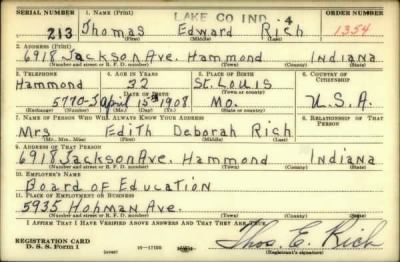 SERIAL NUMBER 1. NAME (Print) LAKE CO IND. 4 ORDER NUMBER
213 Thomas Edward Rich 1354
(First) (Middle) (Last)
2. ADDRESS (Print)
6918 Jackson Ave. Hammond Indiana
(Number and street or R. F. D. number) (Town) (County) (State)
3. TELEPHONE 4. AGE IN YEARS 5. PLACE OF BIRTH 6. COUNTRY OF CITIZENSHIP
Hammond 32 St. Louis
DATE OF BIRTH (Town or county)
5770-J April 15th 1908 Mo. U.S.A.
(Exchange) (Number) (Mo.) (Day) (Yr.) (State or country)
7. NAME OF PERSON WHO WILL ALWAYS KNOW YOUR ADDRESS 8. RELATIONSHIP OF THAT PERSON
Mrs Edith Deborah Rich
(Mr., Mrs., Miss) (First) (Middle) (Last)
9. ADDRESS OF THAT PERSON
6918 Jackson Ave. Hammond Indiana
(Number and street or R. F. D. number) (Town) (County) (State)
10. EMPLOYER'S NAME
Board of Education
11. PLACE OF EMPLOYMENT OR BUSINESS
5935 Hohman Ave.
(Number and street or R. F. D. number) (Town) (County) (State)
I AFFIRM THAT I HAVE VERIFIED ABOVE ANSWERS AND THAT THEY ARE TRUE.
REGISTRATION CARD
D. S. S. Form 1 Thos. E. Rich
(Registrant's signature)